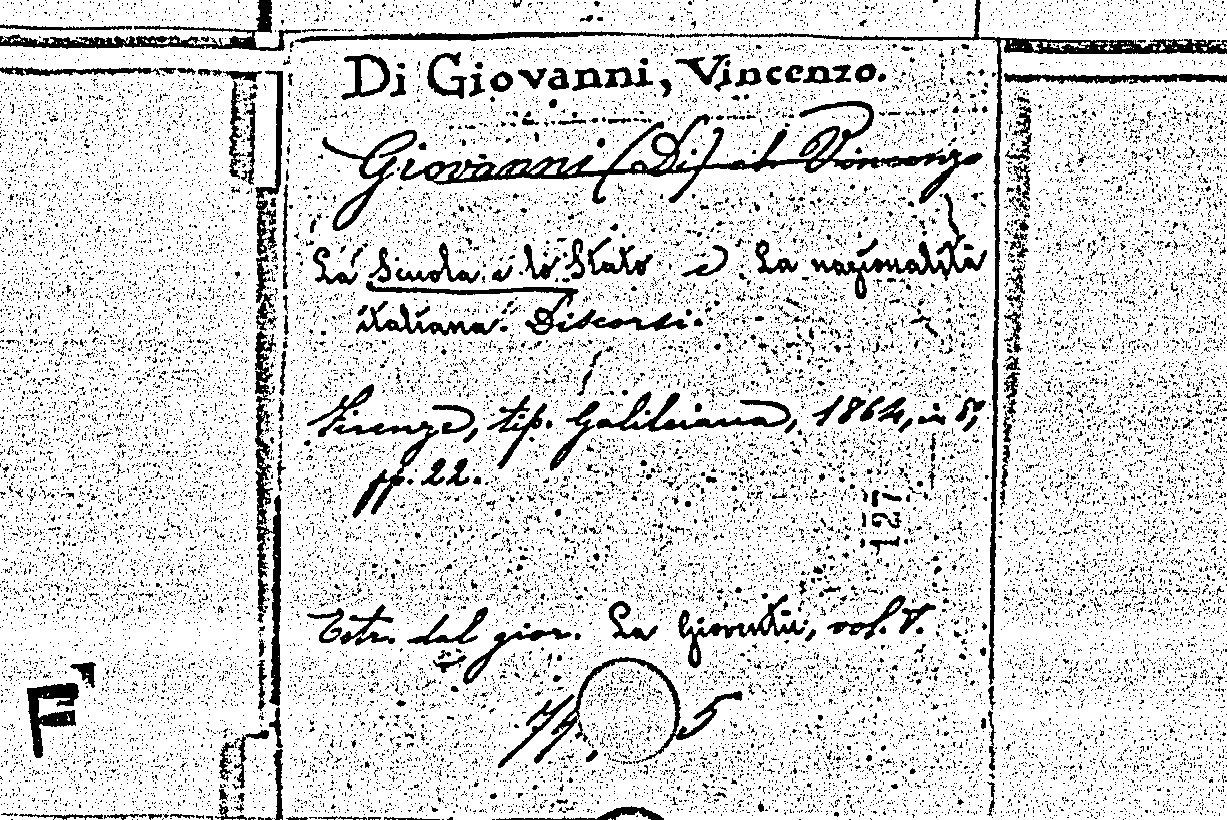 Di Giovanni, Vincenzo.
Giovanni (Di) ab. Vincenzo
La Scuola e lo Stato e La nazionalità
italiana. Discorsi.
Firenze, tip. Galileiana, 1864, in 8°,
pp. 22.
127
Estr. dal gior. La Gioventù, vol. V.
5
F